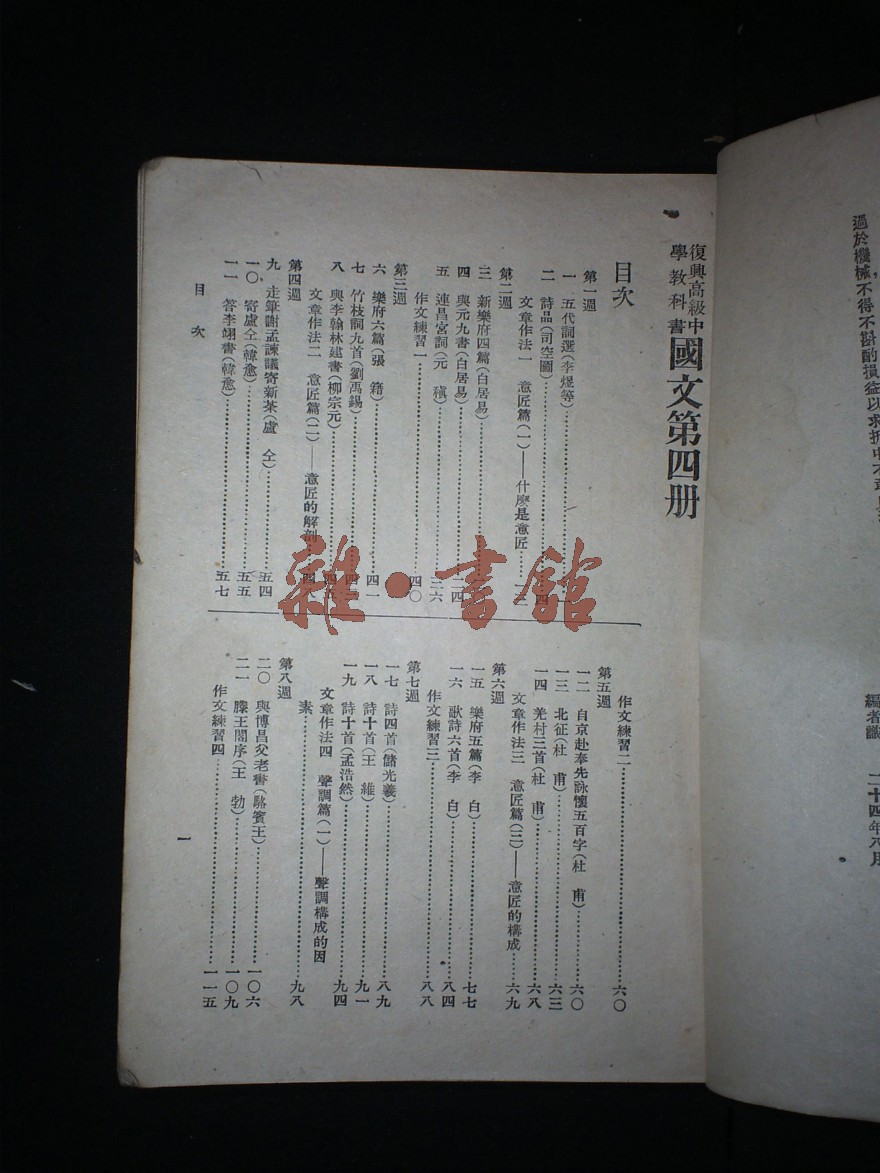 過於機械，不得不斟酌損益以求折中
編者識 二十四年八月
復興高級中學教科書 國文第四册
目次
第一週
一 五代詞選（李煜等）
二 詩品（司空圖）
文章作法一 意匠篇（一）——什麼是意匠
第二週
三 新樂府四篇（白居易）
四 與元九書（白居易）
五 連昌宮詞（元 稹）三六
作文練習一 四〇
第三週
六 樂府六篇（張 籍）四一
七 竹枝詞九首（劉禹錫）
八 與李翰林建書（柳宗元）
文章作法二 意匠篇（二）——意匠的解剖
第四週
九 走筆謝孟諫議寄新茶（盧 仝）五四
一〇 寄盧仝（韓愈）五五
一一 答李翊書（韓愈）五七
作文練習二 六〇
第五週
一二 自京赴奉先詠懷五百字（杜 甫）六〇
一三 北征（杜 甫）六三
一四 羌村三首（杜 甫）六八
文章作法三 意匠篇（三）——意匠的構成 六九
第六週
一五 樂府五篇（李 白）七七
一六 歌詩六首（李 白）八四
作文練習三 八八
第七週
一七 詩四首（儲光羲）八九
一八 詩十首（王 維）九一
一九 詩十首（孟浩然）九四
文章作法四 聲調篇（一）——聲調構成的因
素 九八
第八週
二〇 與博昌父老書（駱賓王）一〇六
二一 滕王閣序（王 勃）一〇九
作文練習四 一一五
目次
一
雜·書館